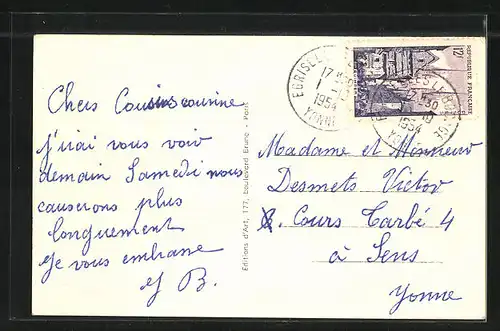 Chers Cousins cousine
j'irai vous voir
demain Samedi nous
causerons plus
longuement
Je vous embrasse
B.
Editions d'Art, 177, boulevard Brune - Paris
EGRISELLES
17 H 30
1954
YONNE
12F
REPUBLIQUE FRANÇAISE
LE BOCAGE
17 H 30
1954
Madame et Monsieur
Desmets Victor
Cours Tarbé 4
à Sens
Yonne